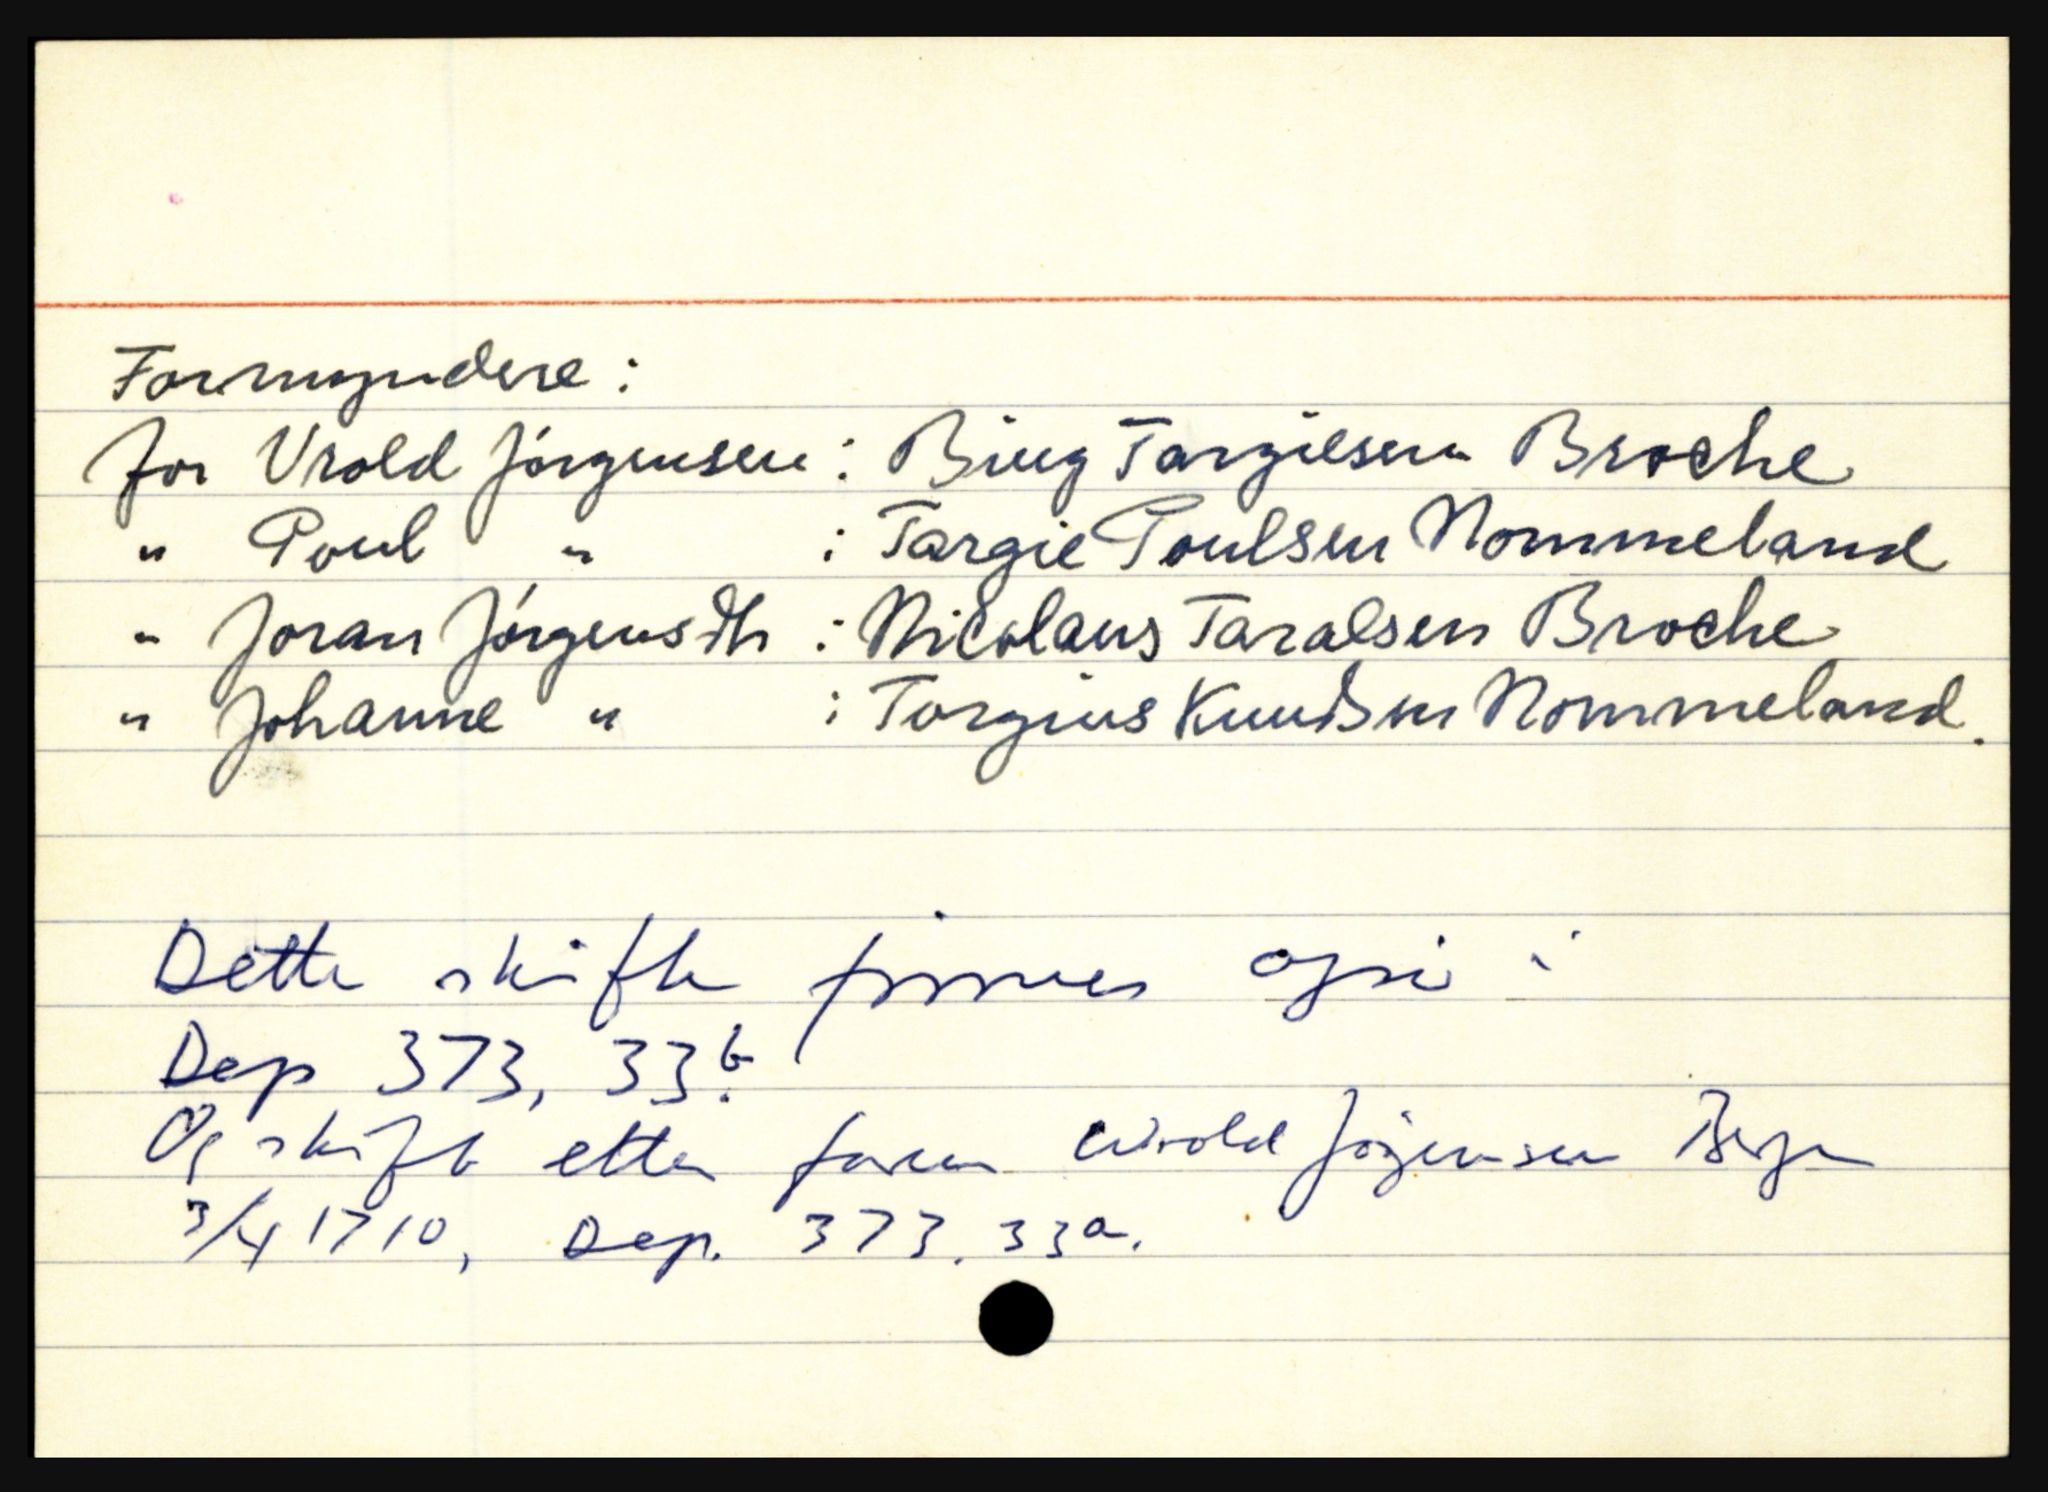 Formyndere:
for Vrold Jörgensen: Biug Targiesen Broche
" Poul " : Targie Poulsen Nommeland
" Joran Jörgensdtr : Nicolaus Taralsen Broche
" Johanne " : Torgius Knudsen Nommeland.
Dette skifte finnes også i
Dep 373, 33b.
Og skifte etter faren Wrold Jörgensen
3/4 1710, Dep. 373. 33a.